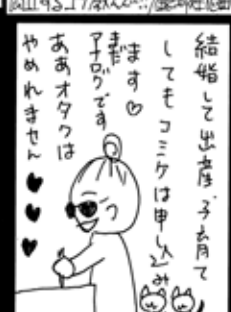 結婚して出産、子育て
してもコミケは申し込み
ます♡
まだ
アナログです
ああオタクは
やめれません
♥♥♥